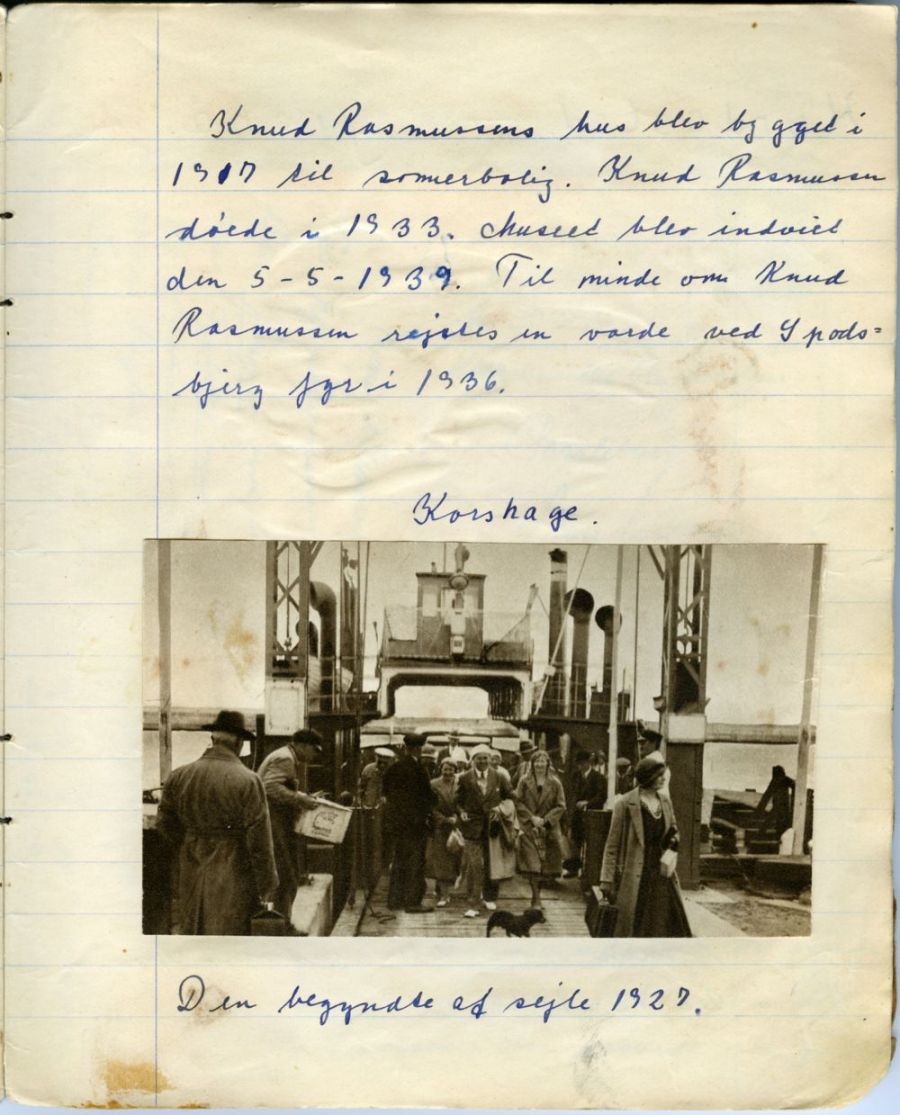 Knud Rasmussens hus blev bygget i
1917 til somerbolig. Knud Rasmussen
døede i 1933. Museet blev indviet
den 5-5-1939. Til minde om Knud
Rasmussen rejstes en varde ved Spods=
bjerg fyr i 1936.
Korshage.
Den begyndte af sejle 1927.